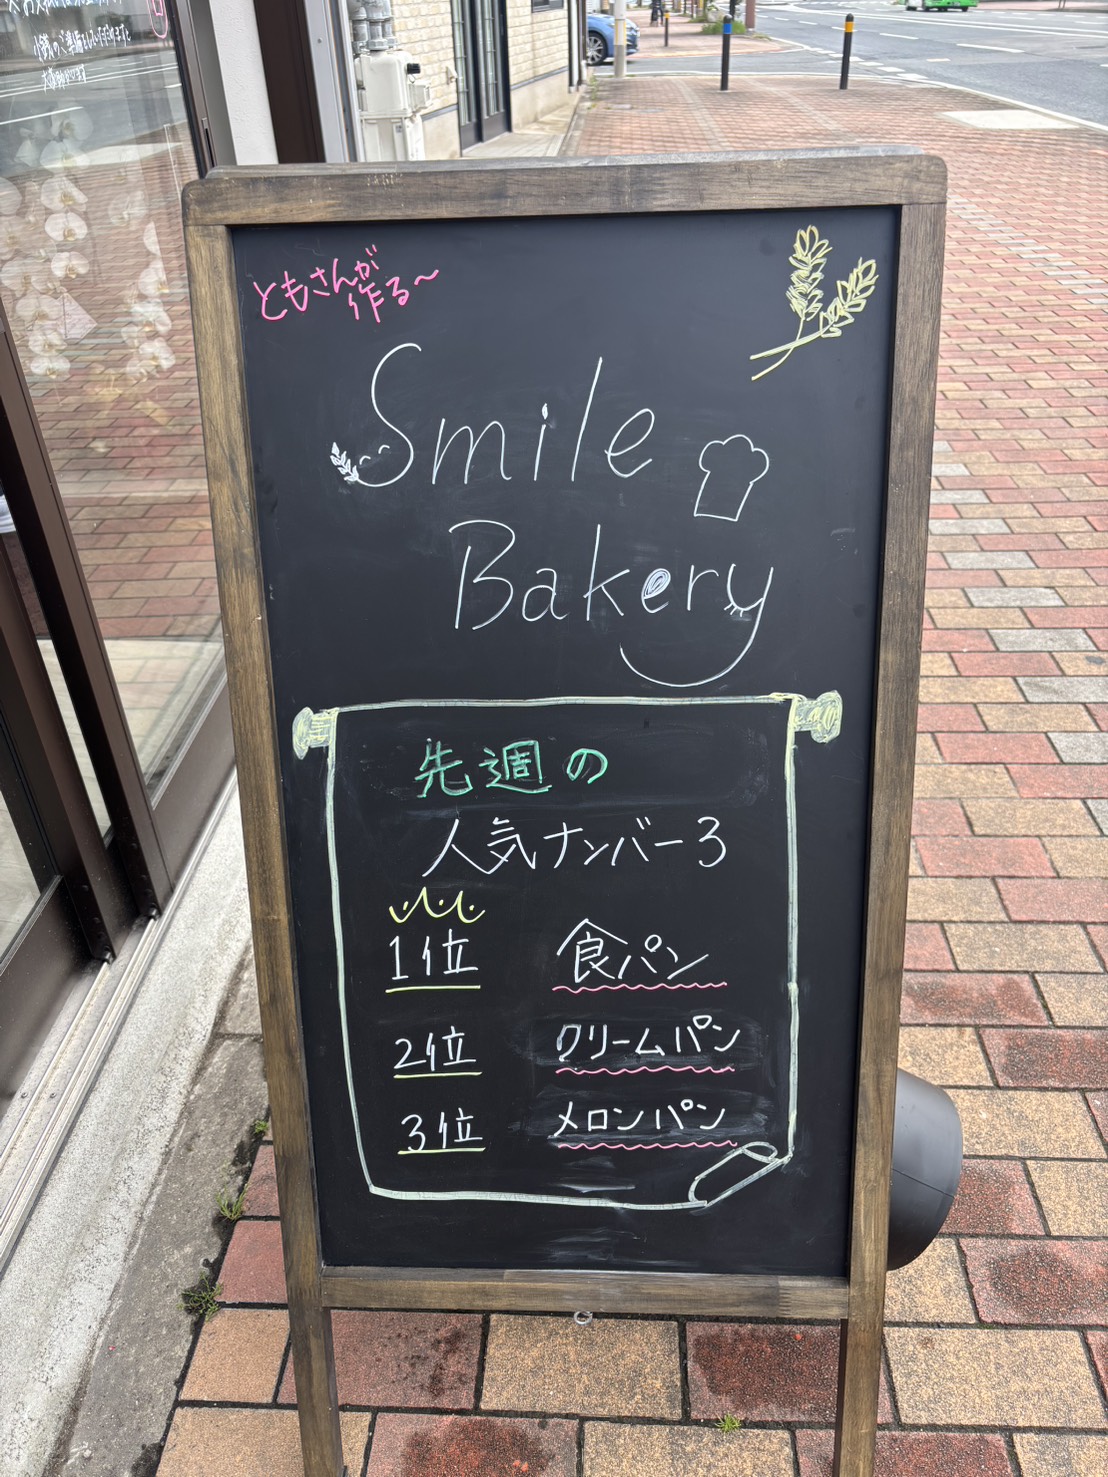 ともさんが
作る〜
Smile
Bakery
先週の
人気ナンバー3
1位 食パン
2位 クリームパン
3位 メロンパン